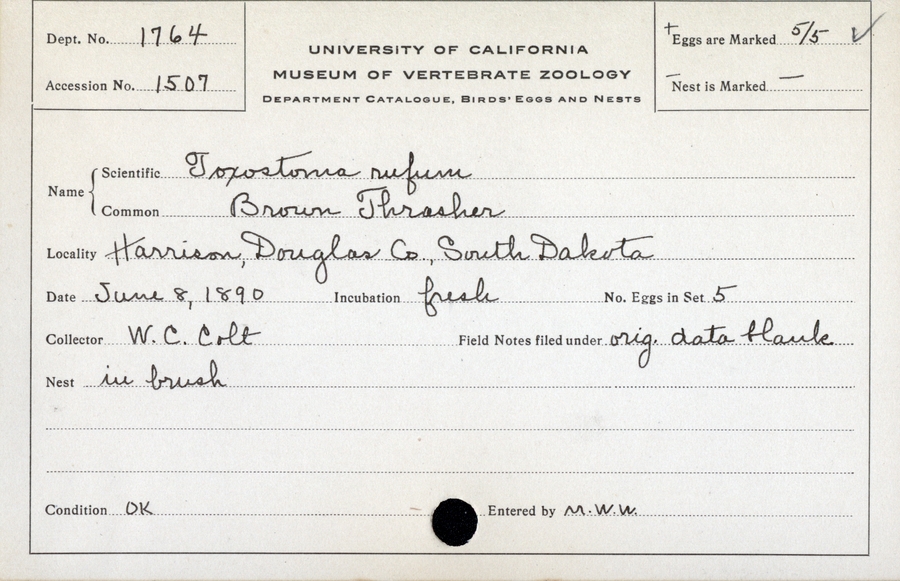 Dept. No. 1764
Accession No. 1507
UNIVERSITY OF CALIFORNIA
MUSEUM OF VERTEBRATE ZOOLOGY
DEPARTMENT CATALOGUE, BIRDS' EGGS AND NESTS
+Eggs are Marked 5/5 ✓
—Nest is Marked —
Name { Scientific Toxostoma rufum
Common Brown Thrasher
Locality Harrison, Douglas Co., South Dakota
Date June 8, 1890 Incubation fresh No. Eggs in Set 5
Collector W. C. Colt Field Notes filed under orig. data blank
Nest in brush
Condition OK Entered by M.W.W.